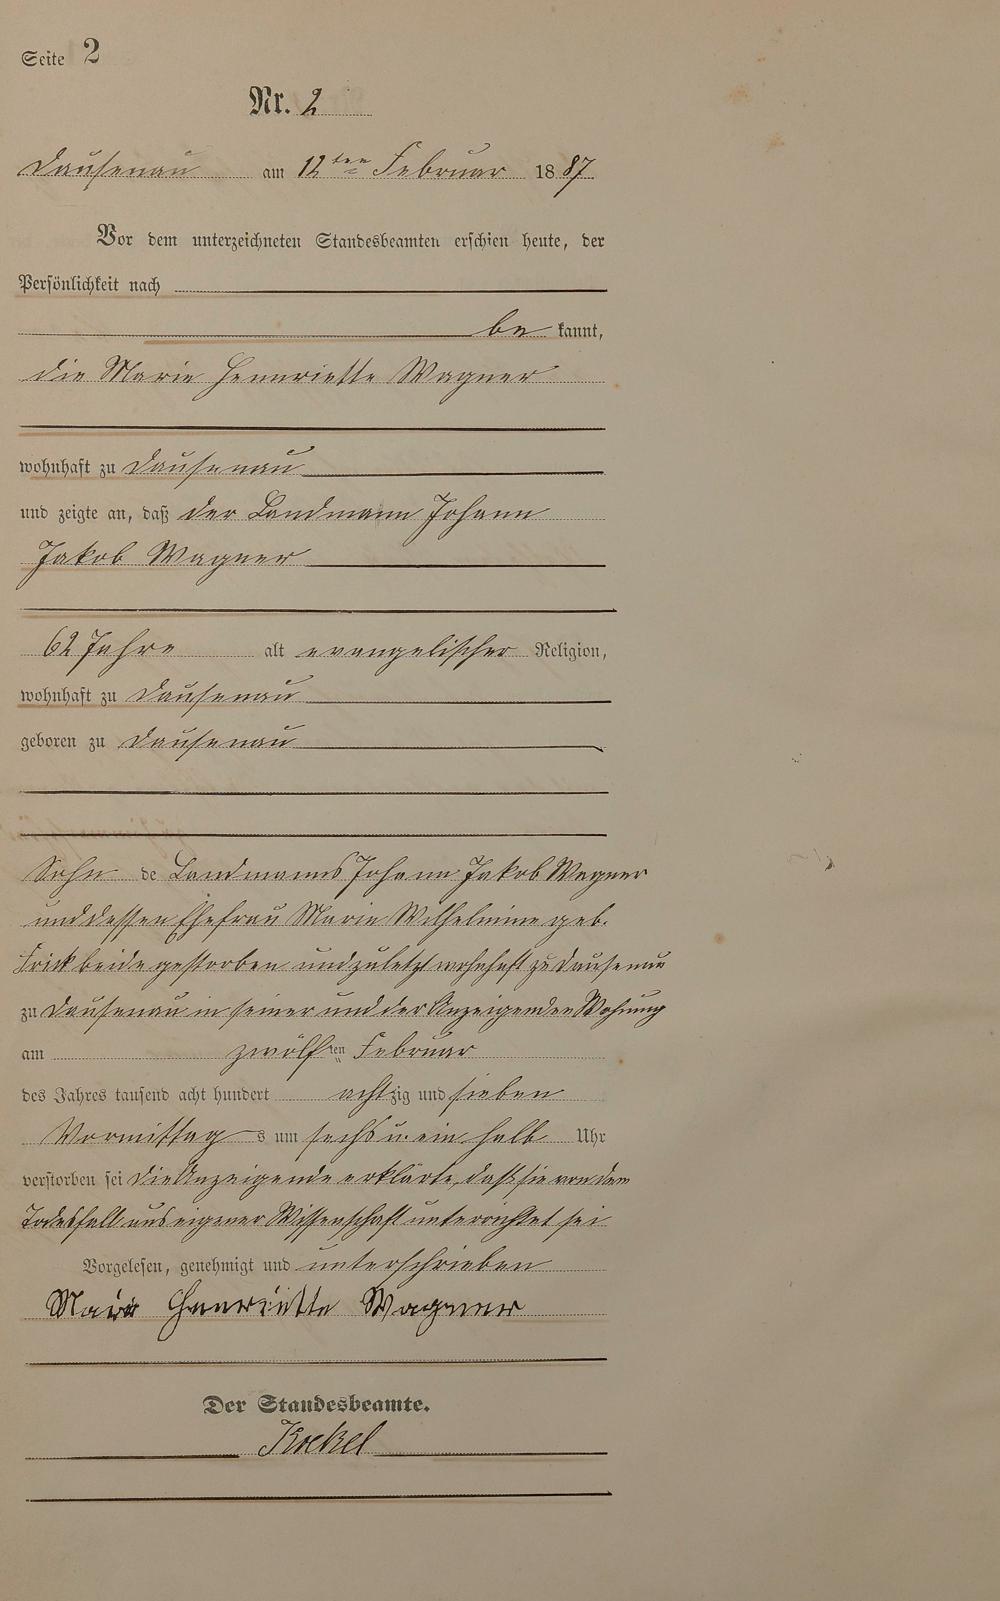 Seite 2
Nr. 2
Dausenau am 12ten Februar 1887
Vor dem unterzeichneten Standesbeamten erschien heute, der
Persönlichkeit nach
be kannt,
die Marie Hennriette Wagner
wohnhaft zu Dausenau
und zeigte an, daß der Landmann Johann
Jakob Wagner
62 Jahre alt evangelischer Religion,
wohnhaft zu Dausenau
geboren zu Dausenau
Sohn de Landmanns Johann Jakob Wagner
und dessen Ehefrau Marie Wilhelmine geb.
Frick beide gestorben und zuletzt wohnhaft zu Dausenau
zu Dausenau in seiner und der Anzeigenden Wohnung
am zwölften Februar
des Jahres tausend acht hundert achtzig und sieben
Vormittags um sechs u. ein halb Uhr
verstorben sei die Anzeigende erklärte, daß sie von dem
Todesfall aus eigener Wissenschaft unterrichtet sei
Vorgelesen, genehmigt und unterschrieben
Marie Henriette Wagner
Der Standesbeamte.